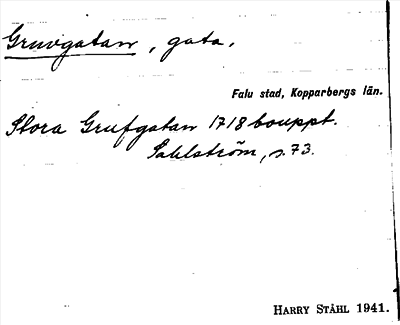 Gruvgatan, gata.
Falu stad, Kopparbergs län.
Stora Grufgatan 1718 bouppt.
Sahlström, s. 73.
HARRY STÅHL 1941.